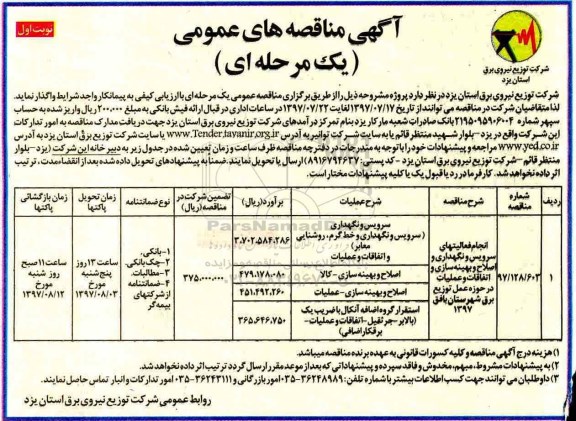 نوبت اول
آگهی مناقصه های عمومی
(یک مرحله ای)
شرکت توزیع نیروی برق
استان یزد
شرکت توزیع نیروی برق استان یزد در نظر دارد پروژه مشروحه ذیل را از طریق برگزاری مناقصه عمومی یک مرحله ای با ارزیابی کیفی به پیمانکار واجد شرایط واگذار نماید.
لذا متقاضیان شرکت در مناقصه می توانند از تاریخ ۱۳۹۷/۰۷/۱۷ لغایت ۱۳۹۷/۰۷/۲۲ در ساعات اداری در قبال ارائه فیش بانکی به مبلغ ۲۰۰,۰۰۰ ریال واریز شده به حساب
سپهر شماره ۲۱۹۵۰۹۵۹۰۶۰۰۴ بانک صادرات شعبه مارکار یزد بنام تمرکز درآمدهای شرکت توزیع نیروی برق استان یزد جهت دریافت مدارک مناقصه به امور تدارکات
این شرکت واقع در یزد-بلوار شهید منتظر قائم یا به سایت شرکت توانیر به آدرس www.Tender.tavanir.org.ir یا سایت شرکت توزیع برق استان یزد به آدرس
www.yed.co.ir مراجعه و پیشنهادات خود را با توجه به مندرجات در دفترچه مناقصه ظرف ساعت و زمان تعیین شده در جدول زیر به دبیرخانه این شرکت (یزد-بلوار
منتظر قائم-شرکت توزیع نیروی برق استان یزد -کد پستی: ۸۹۱۶۷۹۴۶۳۷) ارسال یا تحویل نمایند. ضمنا به پیشنهادهای تحویل داده شده بعد از انقضاء مدت، ترتیب
اثر داده نخواهد شد. کارفرما در رد یا قبول یک یا کلیه پیشنهادات مختار است.
ردیف شماره مناقصه شرح مناقصه شرح عملیات برآورد(ریال) تضمین شرکت در مناقصه(ریال) نوع ضمانتنامه زمان تحویل پاکتها زمان بازگشائی پاکتها
۱ ۹۷/۱۲۸/۶۰۳
انجام فعالیتهای سرویس و نگهداری و اصلاح و بهینه سازی و اتفاقات و عملیات در حوزه عمل توزیع برق شهرستان بافق ۱۳۹۷
سرویس و نگهداری
(سرویس و نگهداری و خط گرم، روشنایی معابر)
و اتفاقات و عملیات
۲,۷۰۲,۵۸۴,۲۸۶
اصلاح و بهینه سازی - کالا ۴۷۹,۱۷۸,۰۸۰
اصلاح و بهینه سازی-عملیات ۴۵۱,۴۹۲,۲۶۰
استقرار گروه اضافه آنکال با ضریب یک
(بالابر-جرثقیل-اتفاقات و عملیات-
برقکار اضافی)
۳۶۵,۶۴۶,۷۵۰
۳۷۵,۰۰۰,۰۰۰
۱-بانکی.
۲-چک بانکی.
۳-مطالبات.
۴-ضمانتنامه
از شرکتهای
بیمه گر
ساعت ۱۳ روز
پنج شنبه
مورخ
۱۳۹۷/۰۸/۰۳
ساعت ۱۱ صبح
روز شنبه
مورخ
۱۳۹۷/۰۸/۱۲
۱) هزینه درج آگهی مناقصه و کلیه کسورات قانونی به عهده برنده مناقصه میباشد.
۲) به پیشنهادات مشروط، مبهم، مخدوش و فاقد سپرده و پیشنهاداتی که بعد از موعد مقرر ارسال گردد ترتیب اثر داده نخواهد شد.
۳) داوطلبان می توانند جهت کسب اطلاعات بیشتر با شماره تلفن: ۳۶۲۴۸۹۸۹-۰۳۵ امور بازرگانی و ۳۶۲۴۳۱۱۱-۰۳۵ امور تدارکات و انبار تماس حاصل نمایند.
روابط عمومی شرکت توزیع نیروی برق استان یزد